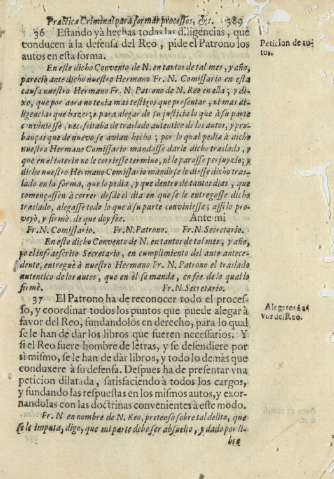 Practica Criminal para formar processos, &c. 389
36 Estando yà hechas todas las diligencias, que
conducen à la defensa del Reo, pide el Patrono los
autos en esta forma.
Peticion de au-
tos.
En este dicho Convento de N. en tantos de tal mes, y año,
pareciò ante dicho nuestro Hermano Fr. N. Comissario en esta
causa nuestro Hermano Fr. N. Patrono de N. Reo en ella; y di-
xo, que por aora no tenia mas testigos que presentar, ni mas di-
ligencias que hazer; y para alegar de su justicia lo que à su parte
conviniesse, necessitaba de traslado autentico de los autos, y pro-
banças que de nuevo se avian hecho; por lo qual pedia à dicho
nuestro Hermano Comissario mandasse darle dicho traslado, y
que en el interin no le corriesse termino, ni le parasse perjuyzio; y
dicho nuestro Hermano Comissario mandò se le diesse dicho tras-
lado en la forma, que lo pedia, y que dentro de tantos dias, que
començassen à correr desde el dia en que se le entregasse dicho
traslado, alegasse todo lo que à su parte conviniesse; assi lo pro-
veyò, y firmò. de que doy fee. Ante mi
Fr. N. Comissario. Fr. N. Patrono. Fr. N. Secretario.
En este dicho Convento de N. en tantos de tal mes, y año,
yo el infraescrito Secretario, en cumplimiento del auto antece-
dente, entreguè à nuestro Hermano Fr. N. Patrono el traslado
autentico de los autos, que en èl se manda, en fee de lo qual lo
firmè. Fr. N. Secretario.
37 El Patrono ha de reconocer todo el proces-
so, y coordinar todos los puntos que puede alegar à
favor del Reo, fundandolos en derecho, para lo qual
se le han de dar los libros que fueren necessarios. Y
si el Reo fuere hombre de letras, y se defendiere por
sì mismo, se le han de dàr libros, y todo lo demàs que
conduxere à su defensa. Despues ha de presentar vna
peticion dilatada, satisfaciendo à todos los cargos,
y fundando las respuestas en los mismos autos, y exor-
nandolas con las doctrinas convenientes à este modo.
Fr. N. en nombre de N. Reo, pretenso sobre tal delito, que
se le imputa, digo, que mi parte debo ser absuelto, y dado por li-